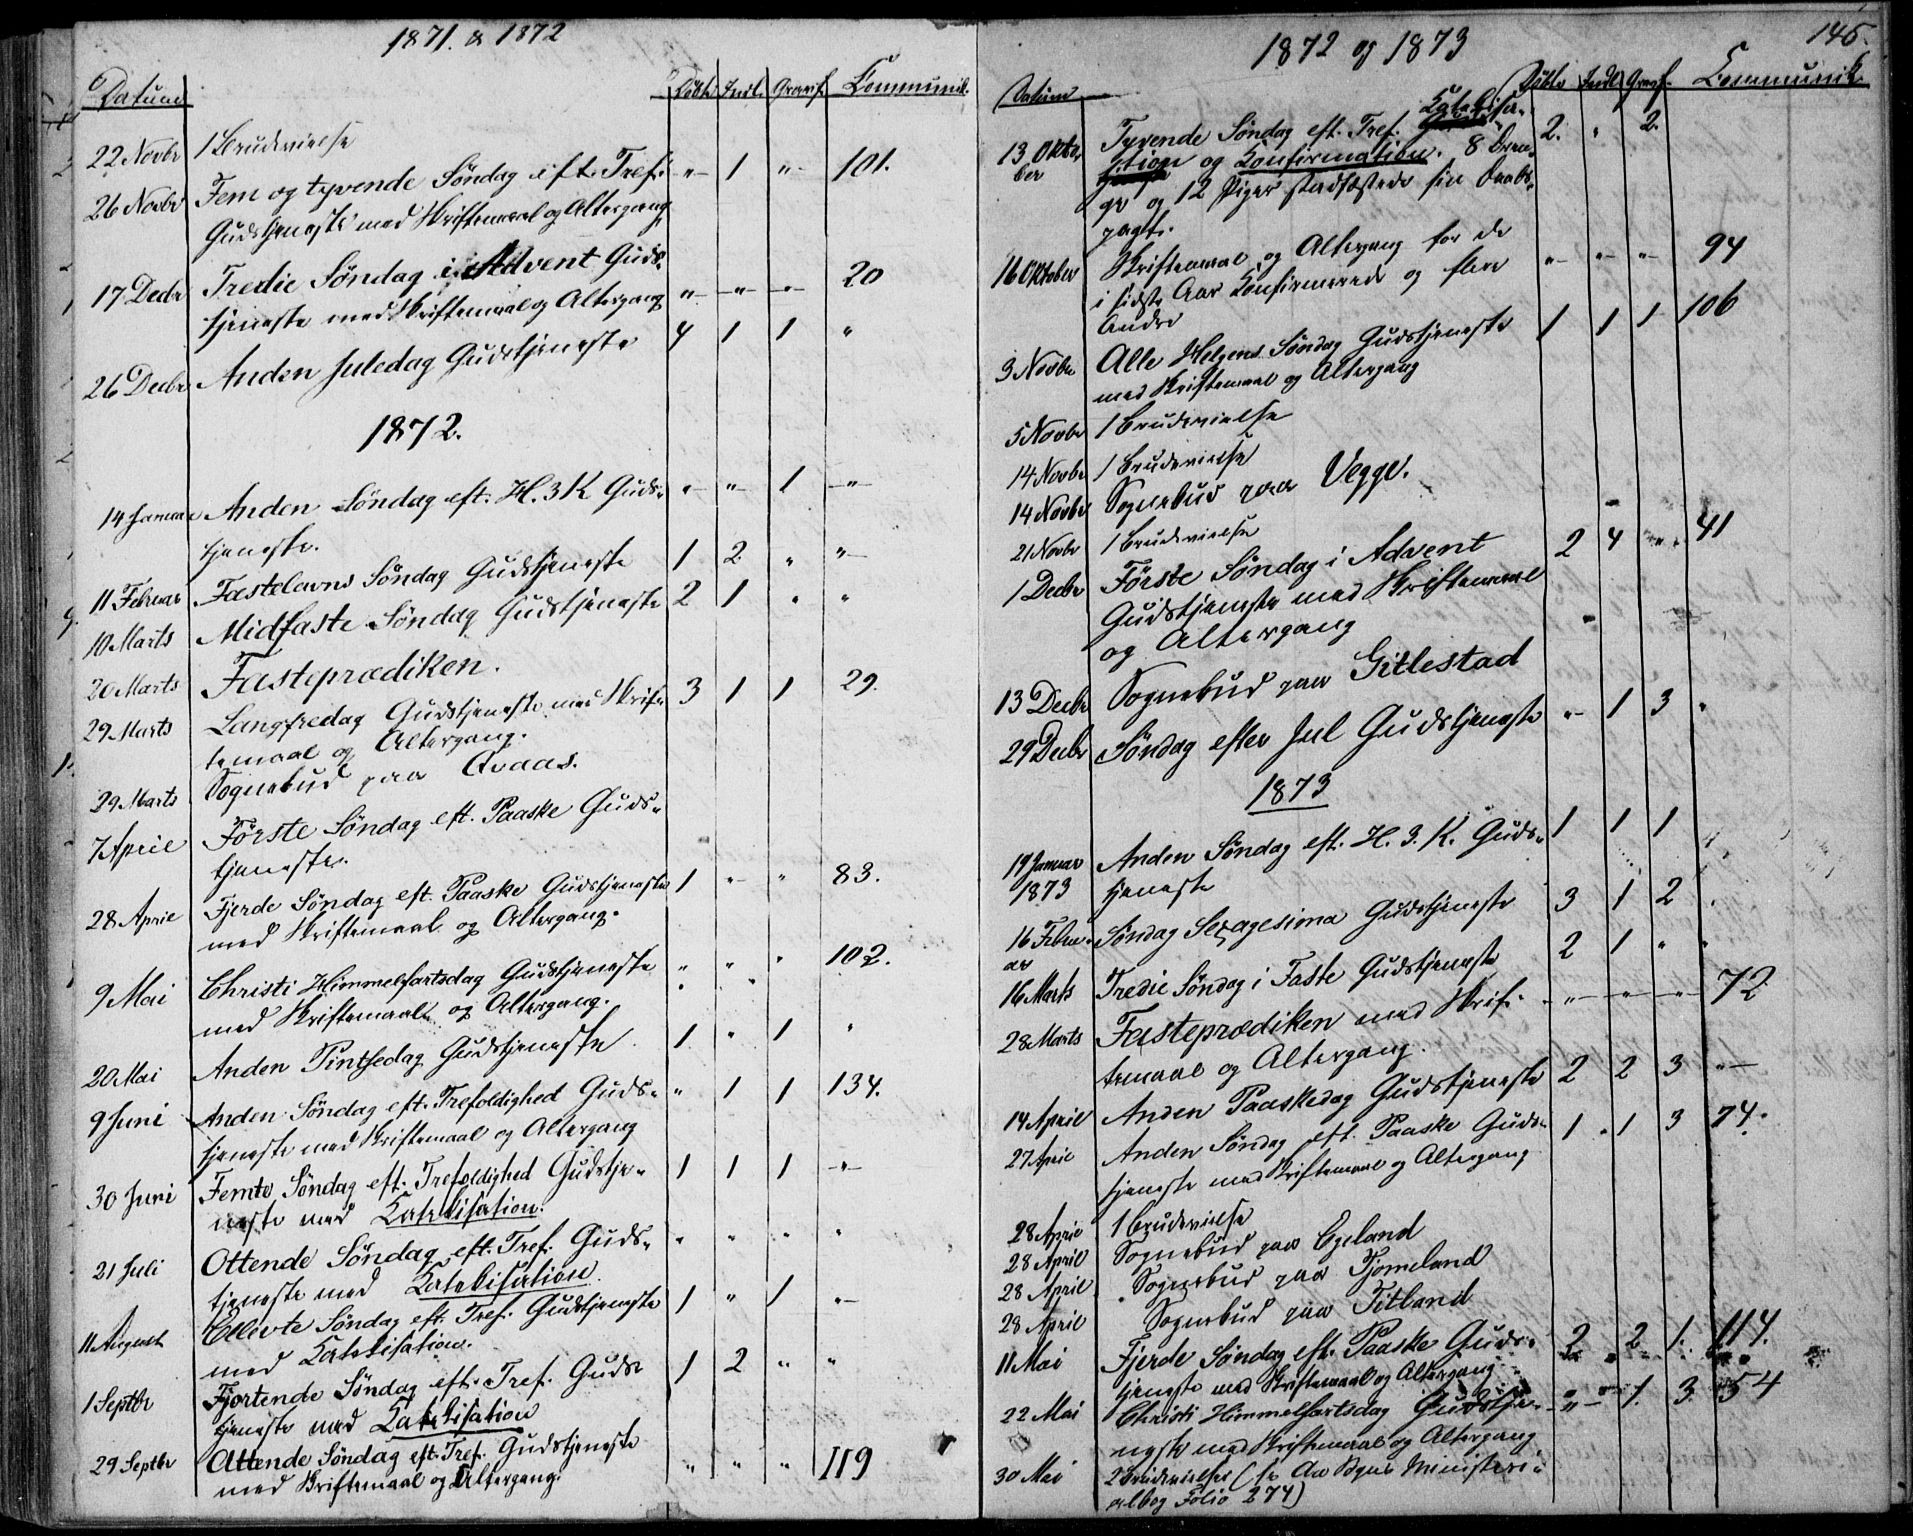 1871. & 1872
Datum Døbte Indl. Graaf. Communik.
22 Novbr 1 Brudevielse
26 Novbr Fem og tyvende Søndag eft. Tref. „ 1 „ 101.
Gudstjeneste med Skriftemaal og Altergang
17 Decbr Tredie Søndag i Advent Guds- „ „ „ 20
tjeneste med Skriftemaal og Altergang
26 Decbr Anden Juledag Gudstjeneste 4 1 1 „
1872.
14 Januar Anden Søndag eft. H. 3 K Guds- „ „ 1 „
tjeneste.
11 Februar Fastelavns Søndag Gudstjeneste 1 2 „ „
10 Marts Midfaste Søndag Gudstjeneste 2 1 „ „
20 Marts Fasteprædiken.
29 Marts Langfredag Gudstjeneste med Skrif- 3 1 1 29.
temaal og Altergang.
29 Marts Sognebud paa
7 April Første Søndag eft. Paaske Guds-
tjeneste.
28 April Fjerde Søndag eft. Paaske Gudstjeneste 1 „ „ 83.
med Skriftemaal og Altergang.
9 Mai Christi Himmelfartsdag Gudstjeneste „ „ „ 102.
med Skriftemaal og Altergang.
20 Mai Anden Pintsedag Gudstjeneste 1 „ 1 „
9 Juni Anden Søndag eft. Trefoldighed Guds- „ 1 1 134.
tjeneste med Skriftemaal og Altergang
30 Juni Femte Søndag eft. Trefoldighed Gudstje- 1 1 1 „
neste med Katekisation.
21 Juli Ottende Søndag eft. Tref. Guds- „ „ „ „
tjeneste med Katekisation
11 August Ellevte Søndag eft. Tref. Gudstjeneste 1 „ 1 „
med Katekisation.
1 Septbr Fjortende Søndag eft. Tref. Guds- 1 2 „ „
tjeneste med Katekisation
29 Septbr Attende Søndag eft. Tref. Gudstjeneste „ „ „ 119
med Skriftemaal og Altergang.
1872 og 1873
145.
Datum Døbte Indl. Graaf. Communik.
13 Okto- Tyvende Søndag eft. Tref. Katekisa- 2. „ 2.
ber tion og Konfirmation. 8 Dren-
ge og 12 Piger stadfæstede sin Daabs-
pagt.
16 Oktober Skriftemaal og Altergang for de „ „ „ 94
i sidste Aar Konfirmerede og flere
Andre
3 Novbr Alle Helgens Søndag Gudstjeneste 1 1 1 106
med Skriftemaal og Altergang
5 Novbr 1 Brudevielse
14 Novbr 1 Brudevielse
14 Novbr Sognebud paa Vegge.
21 Novbr 1 Brudevielse
1 Decbr Første Søndag i Advent 2 4 „ 41
Gudstjeneste med Skriftemaal
og Altergang
13 Decbr Sognebud paa Gitlestad
29 Decbr Søndag efter Jul Gudstjeneste „ 1 3 „
1873
19 Januar Anden Søndag eft. H. 3. K. Guds- 1 1 1
1873 tjeneste
16 Febru- Søndag Sexagesima Gudstjeneste 3 1 2 „
ar
16 Marts Tredie Søndag i Faste Gudstjeneste 2 1 „ „
28 Marts Fasteprædiken med Skrif- „ „ „ 72
temaal og Altergang.
14 April Anden Paaskedag Gudstjeneste 2 2 3 „
27 April Anden Søndag eft. Paaske Guds- 1 1 3 74.
tjeneste med Skriftemaal og Altergang
28 April 1 Brudevielse
28 April Sognebud paa Egeland
28 April Sognebud paa Tjomeland
28 April Sognebud paa Titland
11 Mai Fjerde Søndag eft. Paaske Guds- 2 2 1. 114.
tjeneste med Skriftemaal og Altergang
22 Mai Christi Himmelfartsdag Gudstje- „ 1. 3. 54
neste med Skriftemaal og Altergang
30 Mai 2 Brudevielser (se Aa Sogns Ministeri-
albog Folio 274)